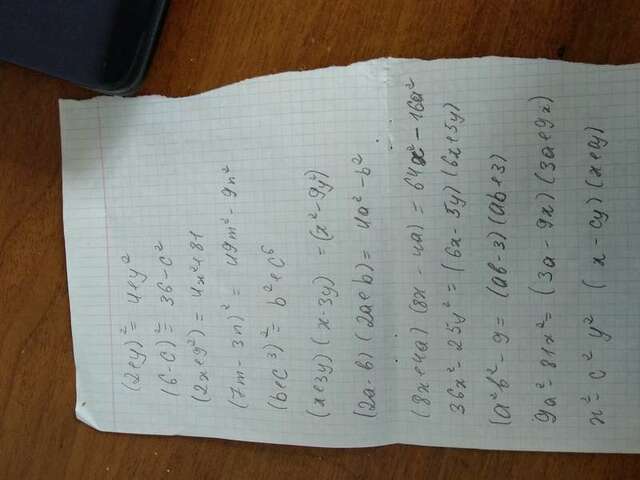 (2+y)² = 4+y²
(6-c)² = 36-c²
(2x+9²) = 4x²+81
(7m-3n)² = 49m²-9n²
(b+c³)² = b²+c⁶
(x+3y)(x-3y) = (x²-9y²)
(2a-b)(2a+b) = 4a²-b²
(8x+4a)(8x-4a) = 64x²-16a²
36x²-25y² = (6x-5y)(6x+5y)
(a²b²-9 = (ab-3)(ab+3)
9a²-81x² = (3a-9x)(3a+9x)
x²-c²y² (x-cy)(x+cy)